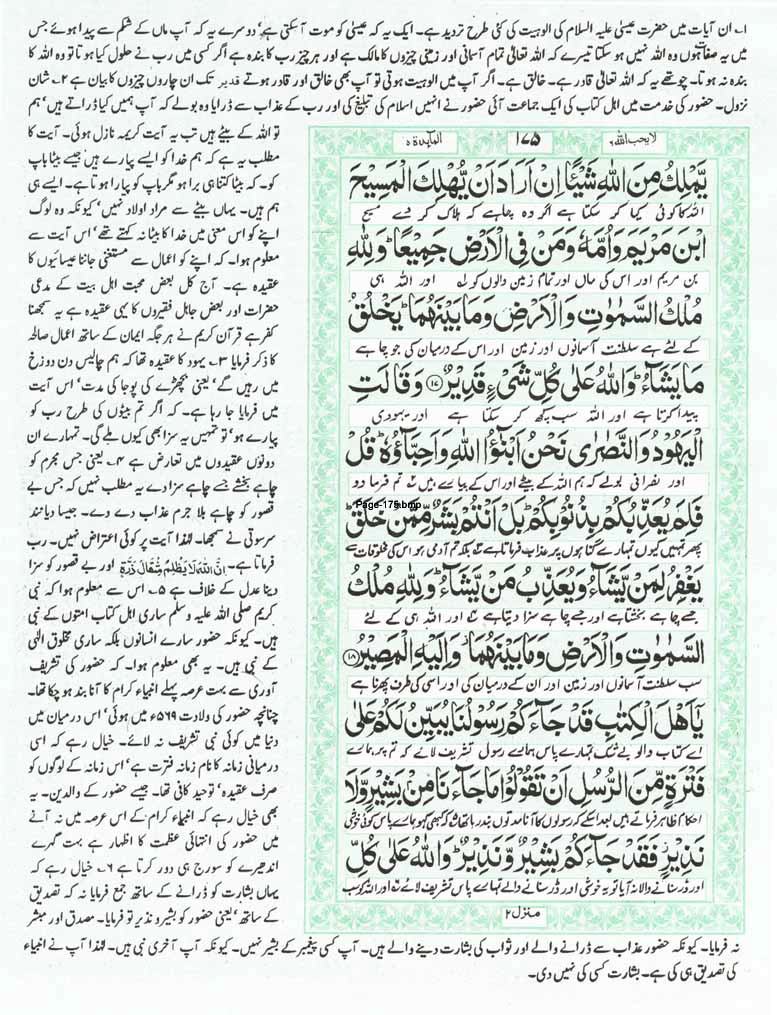 ۱۔ ان آیات میں حضرت عیسیٰ علیہ السلام کی الوہیت کی کئی طرح تردید ہے۔ ایک یہ کہ عیسیٰ کو موت آ سکتی ہے، دوسرے یہ کہ آپ ماں کے شکم سے پیدا ہوئے جس
میں یہ صفات ہوں وہ اللہ نہیں ہو سکتا تیسرے کہ اللہ تعالیٰ تمام آسمانی اور زمینی چیزوں کا مالک ہے اور ہر چیز رب کا بندہ ہے اگر کسی میں رب نے حلول کیا ہوتا تو وہ اللہ کا
بندہ نہ ہوتا۔ چوتھے یہ کہ اللہ تعالیٰ قادر ہے۔ خالق ہے۔ اگر آپ میں الوہیت ہوتی تو آپ بھی خالق اور قادر ہوتے قدیر تک ان چاروں چیزوں کا بیان ہے ۲۔ شان
نزول۔ حضور کی خدمت میں اہل کتاب کی ایک جماعت آئی حضور نے انہیں اسلام کی تبلیغ کی اور رب کے عذاب سے ڈرایا وہ بولے کہ آپ ہمیں کیا ڈراتے ہیں، ہم
تو اللہ کے بیٹے ہیں تب یہ آیت کریمہ نازل ہوئی۔ آیت کا
مطلب یہ ہے کہ ہم خدا کو ایسے پیارے ہیں جیسے بیٹا باپ
کو۔ کہ بیٹا کتنا ہی برا ہو مگر باپ کو پیارا ہوتا ہے۔ ایسے ہی
ہم ہیں۔ یہاں بیٹے سے مراد اولاد نہیں، کیونکہ وہ لوگ
اپنے کو اس معنی میں خدا کا بیٹا نہ کہتے تھے، اس آیت سے
معلوم ہوا۔ کہ اپنے کو اعمال سے مستغنی جاننا عیسائیوں کا
عقیدہ ہے۔ آج کل بعض محبت اہل بیت کے مدعی
حضرات اور بعض جاہل فقیروں کا یہی عقیدہ ہے یہ سمجھنا
کفر ہے قرآن کریم نے ہر جگہ ایمان کے ساتھ اعمال صالحہ
کا ذکر فرمایا ۳۔ یہود کا عقیدہ تھا کہ ہم چالیس دن دوزخ
میں رہیں گے، یعنی بچھڑے کی پوجا کی مدت، اس آیت
میں فرمایا جا رہا ہے۔ کہ اگر تم بیٹوں کی طرح رب کو
پیارے ہو، تو تمہیں یہ سزا بھی کیوں ملے گی۔ تمہارے ان
دونوں عقیدوں میں تعارض ہے ۴۔ یعنی جس مجرم کو
چاہے بخشے جسے چاہے سزا دے یہ مطلب نہیں کہ جس بے
قصور کو چاہے بلا جرم عذاب دے دے۔ جیسا دیانند
سرسوتی نے سمجھا۔ لہذا آیت پر کوئی اعتراض نہیں۔ رب
فرماتا ہے۔ اِنَّ اللّٰهَ لَا يَظْلِمُ مِثْقَالَ ذَرَّةٍ اور بے قصور کو سزا
دینا عدل کے خلاف ہے ۵۔ اس سے معلوم ہوا کہ نبی
کریم صلی اللہ علیہ وسلم ساری اہل کتاب امتوں کے نبی
ہیں۔ کیونکہ حضور سارے انسانوں بلکہ ساری مخلوق الٰہی
کے نبی ہیں۔ یہ بھی معلوم ہوا۔ کہ حضور کی تشریف
آوری سے بہت عرصہ پہلے انبیاء کرام کا آنا بند ہو چکا تھا۔
چنانچہ حضور کی ولادت ۵۶۹ء میں ہوئی، اس درمیان میں
دنیا میں کوئی نبی تشریف نہ لائے۔ خیال رہے کہ اسی
درمیانی زمانہ کا نام زمانہ فترت ہے، اس زمانہ کے لوگوں کو
صرف عقیدہ، توحید کافی تھا۔ جیسے حضور کے والدین۔ یہ
بھی خیال رہے کہ انبیاء کرام کے اس عرصہ میں نہ آنے
میں حضور کی انتہائی عظمت کا اظہار ہے بہت گہرے
اندھیرے کو سورج ہی دور کرتا ہے ۶۔ خیال رہے کہ
یہاں بشارت کو ڈرانے کے ساتھ جمع فرمایا نہ کہ تصدیق
کے ساتھ، یعنی حضور کو بشیر و نذیر تو فرمایا۔ مصدق اور مبشر
لا یحب اللہ ۶
۱۷۵
المائدۃ ۵
يَّمْلِكُ مِنَ اللّٰهِ شَيْـًٔا اِنْ اَرَادَ اَنْ يُّهْلِكَ الْمَسِيْحَ
اللہ کا کوئی کیا کر سکتا ہے اگر وہ چاہے کہ ہلاک کر دے مسیح
ابْنَ مَرْيَمَ وَاُمَّهٗ وَمَنْ فِى الْاَرْضِ جَمِيْعًا ؕ وَلِلّٰهِ
بن مریم اور اس کی ماں اور تمام زمین والوں کو ۱ اور اللہ ہی
مُلْكُ السَّمٰوٰتِ وَالْاَرْضِ وَمَا بَيْنَهُمَا ؕ يَخْلُقُ
کے لئے ہے سلطنت آسمانوں اور زمین اور اس کے درمیان کی جو چاہے
مَا يَشَآءُ ؕ وَاللّٰهُ عَلٰى كُلِّ شَىْءٍ قَدِيْرٌ ۝۱۷ وَقَالَتِ
پیدا کرتا ہے اور اللہ سب کچھ کر سکتا ہے اور یہودی
الْيَهُوْدُ وَالنَّصٰرٰى نَحْنُ اَبْنٰٓؤُا اللّٰهِ وَاَحِبَّآؤُهٗ ؕ قُلْ
اور نصرانی بولے کہ ہم اللہ کے بیٹے اور اس کے پیارے ہیں ۲ تم فرما دو
Page-175.bmp
فَلِمَ يُعَذِّبُكُمْ بِذُنُوْبِكُمْ ؕ بَلْ اَنْتُمْ بَشَرٌ مِّمَّنْ خَلَقَ ؕ
پھر تمہیں کیوں تمہارے گناہوں پر عذاب فرماتا ہے ۳ بلکہ تم آدمی ہو اس کی مخلوقات سے
يَغْفِرُ لِمَنْ يَّشَآءُ وَيُعَذِّبُ مَنْ يَّشَآءُ ؕ وَلِلّٰهِ مُلْكُ
جسے چاہے بخشتا ہے اور جسے چاہے سزا دیتا ہے ۴ اور اللہ ہی کے لئے
السَّمٰوٰتِ وَالْاَرْضِ وَمَا بَيْنَهُمَا ؗ وَاِلَيْهِ الْمَصِيْرُ ۝۱۸
سب سلطنت آسمانوں اور زمین اور ان کے درمیان کی اور اسی کی طرف پھرنا ہے
يٰۤاَهْلَ الْكِتٰبِ قَدْ جَآءَكُمْ رَسُوْلُنَا يُبَيِّنُ لَكُمْ عَلٰى
اے کتاب والو بے شک تمہارے پاس ہمارے رسول تشریف لائے کہ تم پر ہمارے
فَتْرَةٍ مِّنَ الرُّسُلِ اَنْ تَقُوْلُوْا مَا جَآءَنَا مِنْۢ بَشِيْرٍ وَّلَا
احکام ظاہر فرماتے ہیں بعد اسکے کہ رسولوں کا آنا مدتوں بند رہا تھا ۵ کہ کبھی کہو ہمارے پاس کوئی خوشی
نَذِيْرٍ ؗ فَقَدْ جَآءَكُمْ بَشِيْرٌ وَّنَذِيْرٌ ؕ وَاللّٰهُ عَلٰى كُلِّ
اور ڈر سنانے والا نہ آیا تو یہ خوشی اور ڈر سنانے والے تمہارے پاس تشریف لائے ۶ اور اللہ کو سب
منزل ۲
نہ فرمایا۔ کیونکہ حضور عذاب سے ڈرانے والے اور ثواب کی بشارت دینے والے ہیں۔ آپ کسی پیغمبر کے بشیر نہیں۔ کیونکہ آپ آخری نبی ہیں۔ لہذا آپ نے انبیاء
کی تصدیق ہی کی ہے۔ بشارت کسی کی نہیں دی۔